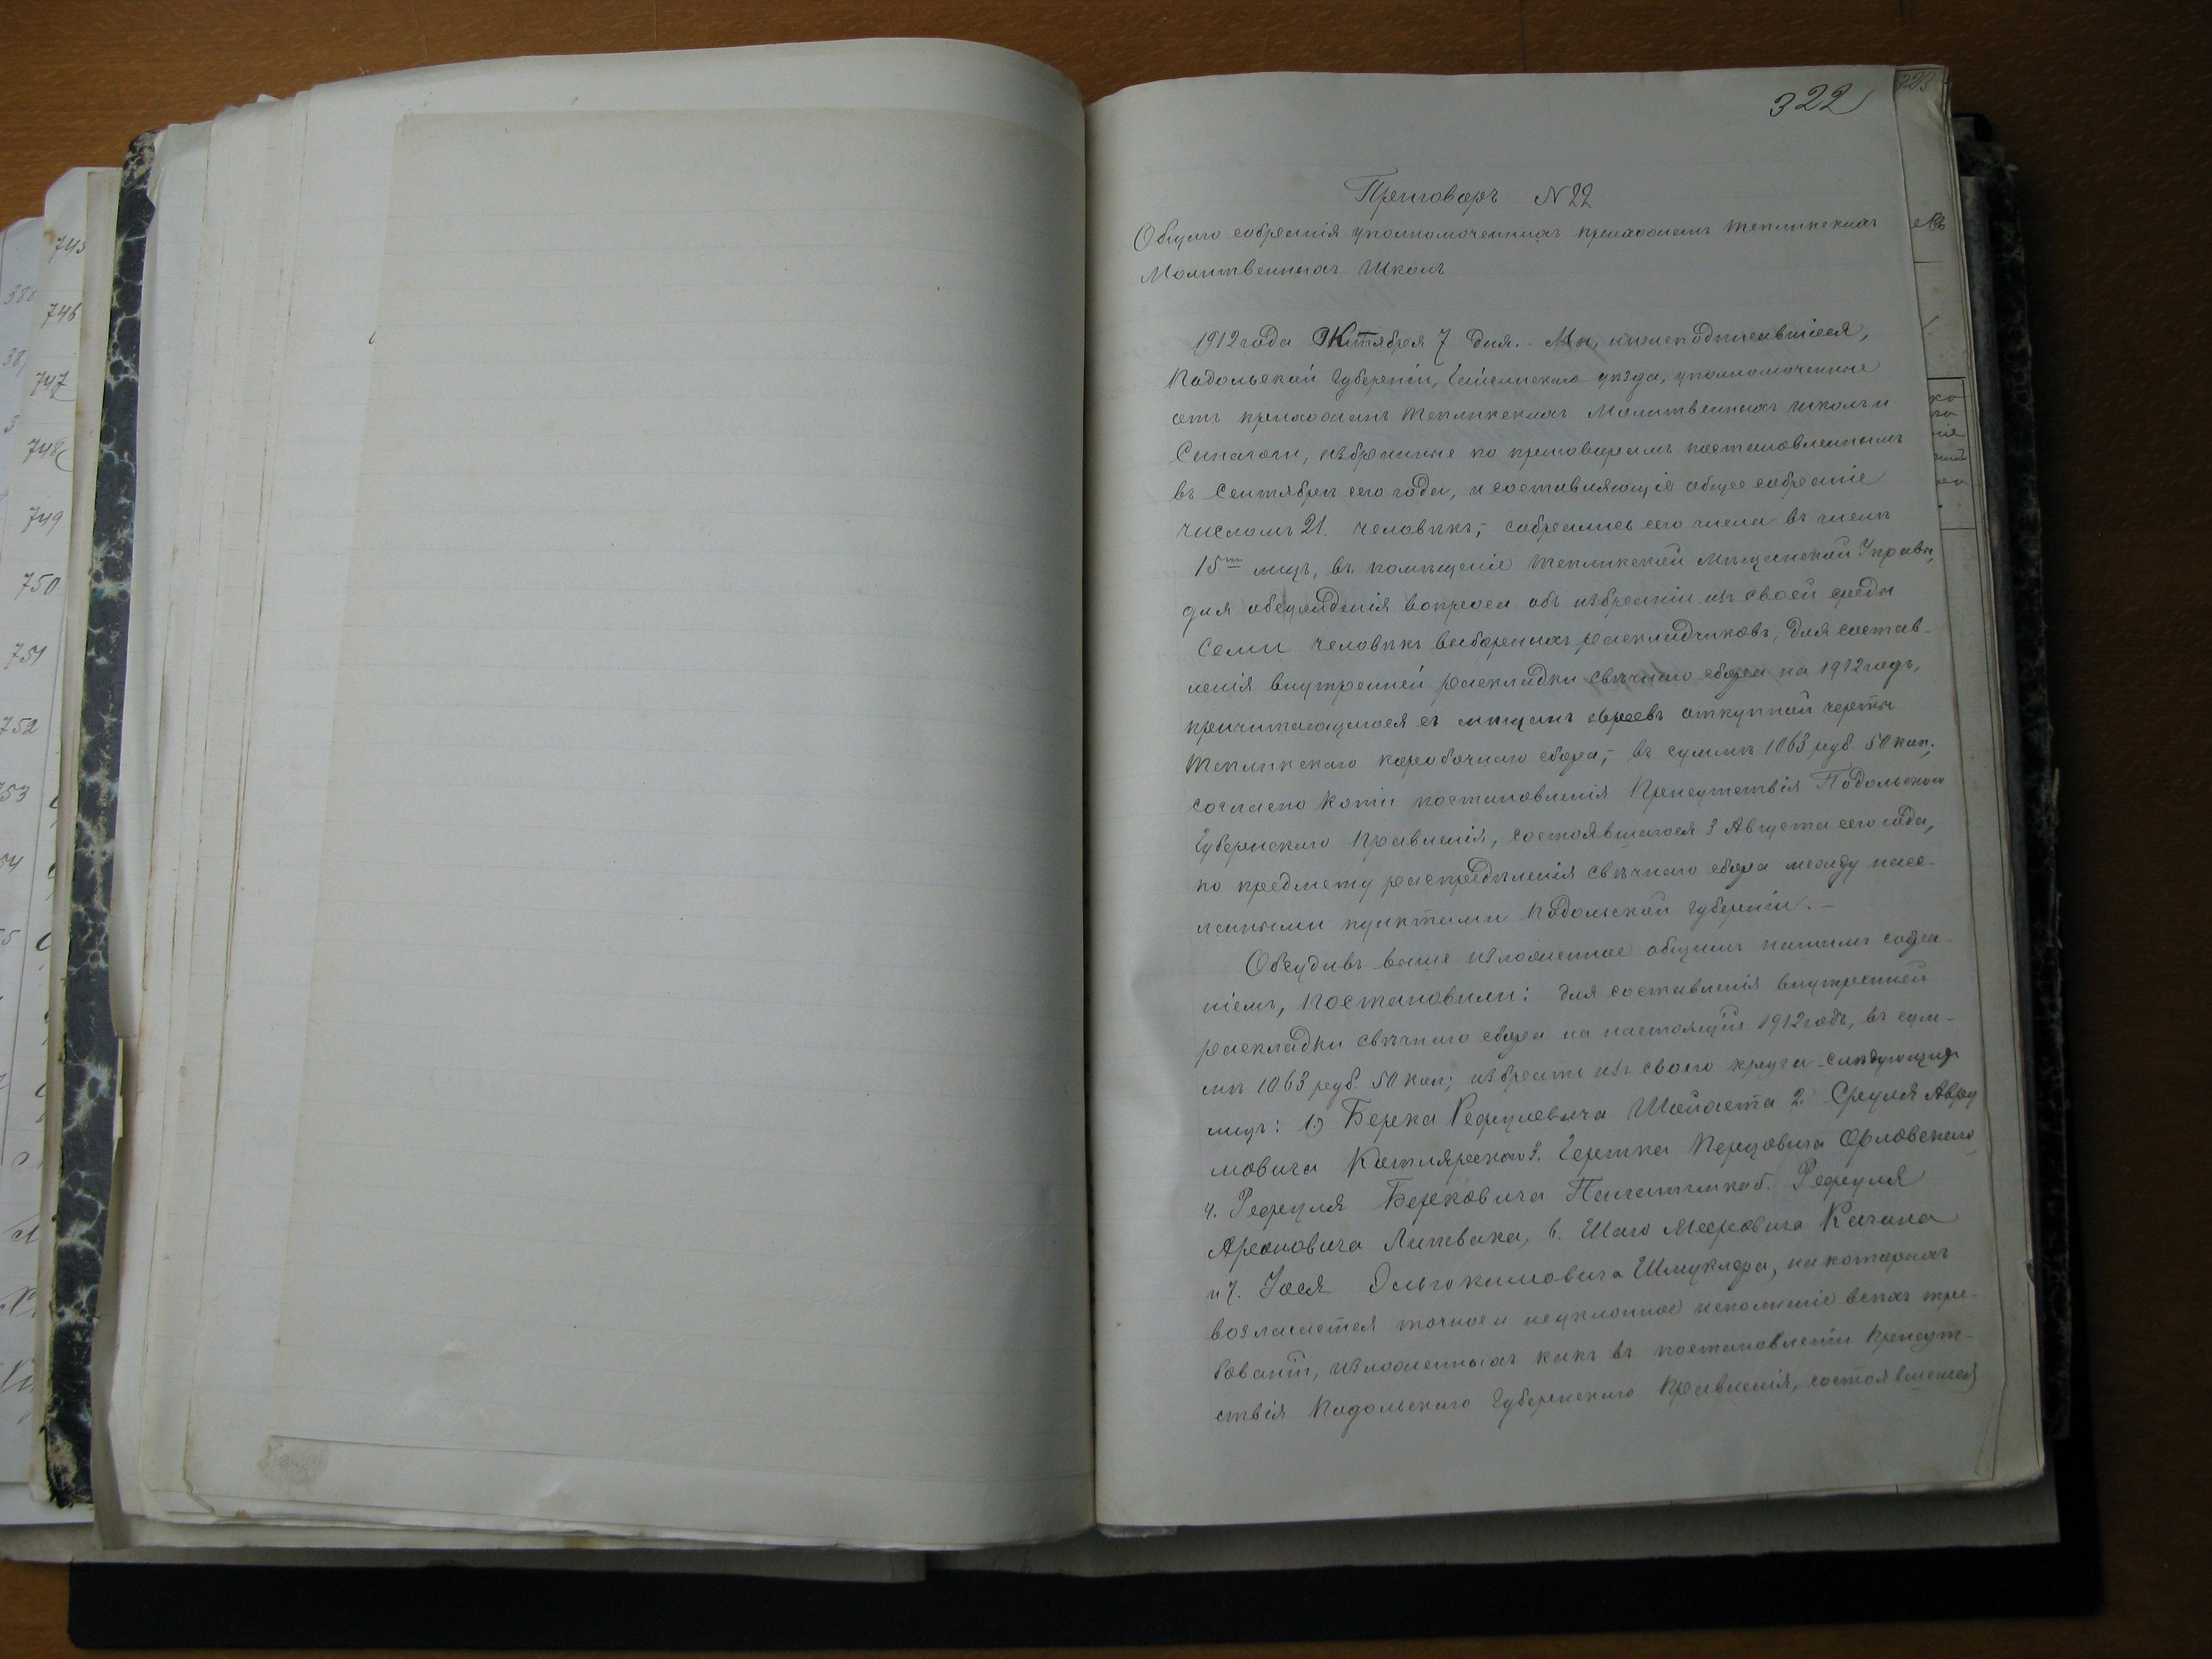 745
746
747
748
749
750
751
752
322
Приговоръ N 22
Общаго собранія уполномоченныхъ прихожанъ Тепликскихъ
Молитвенныхъ Школъ
1912 года Октября 7 дня. Мы, нижеподписавшіеся,
Подольской Губерніи, Гайсинскаго уѣзда, уполномоченные
отъ прихожанъ Тепликскихъ Молитвенныхъ школъ и
Синагоги, избранные по приговорамъ постановленнымъ
въ Сентябрѣ сего года, и составляющіе общее собраніе
числомъ 21. человѣкъ, собрались сего числа въ числѣ
15ти лицъ, въ помѣщеніе Тепликской Мѣщанской Управы,
для обсужденія вопроса объ избраніи изъ своей среды
семи человѣкъ выборныхъ раскладчиковъ, для состав-
ленія внутренней раскладки свѣчного сбора на 1912 годъ,
причитающагося съ мѣщанъ евреевъ откупной черты
Тепликскаго коробочнаго сбора, въ суммѣ 1063 руб. 50 коп.,
согласно копіи постановленія Присутствія Подольскаго
Губернскаго Правленія, состоявшагося 3 Августа сего года,
по предмету распредѣленія свѣчнаго сбора между насе-
ленными пунктами Подольской губерніи. —
Обсудивъ выше изложенное общимъ нашимъ собра-
ніемъ, постановили: для составленія внутренней
раскладки свѣчнаго сбора на настоящій 1912 годъ, въ сум-
мѣ 1063 руб. 50 коп; избрать изъ своего круга слѣдующихъ
лицъ: 1) Берка Рефулевича 2. Сруля Авру
мовича Котлярскаго 3. Гершка Перцовича Орловскаго,
4. Рефуля Берковича 5. Рефуля
Ароновича Литвака, 6. Шаю Мееровича Кагана
и 7. Іося Шмуклера, на которыхъ
возлагается точное и неуклонное исполненіе всѣхъ тре-
бованій, изложенныхъ какъ въ постановленіи Присут-
ствія Подольскаго Губернскаго Правленія, состоявшемся